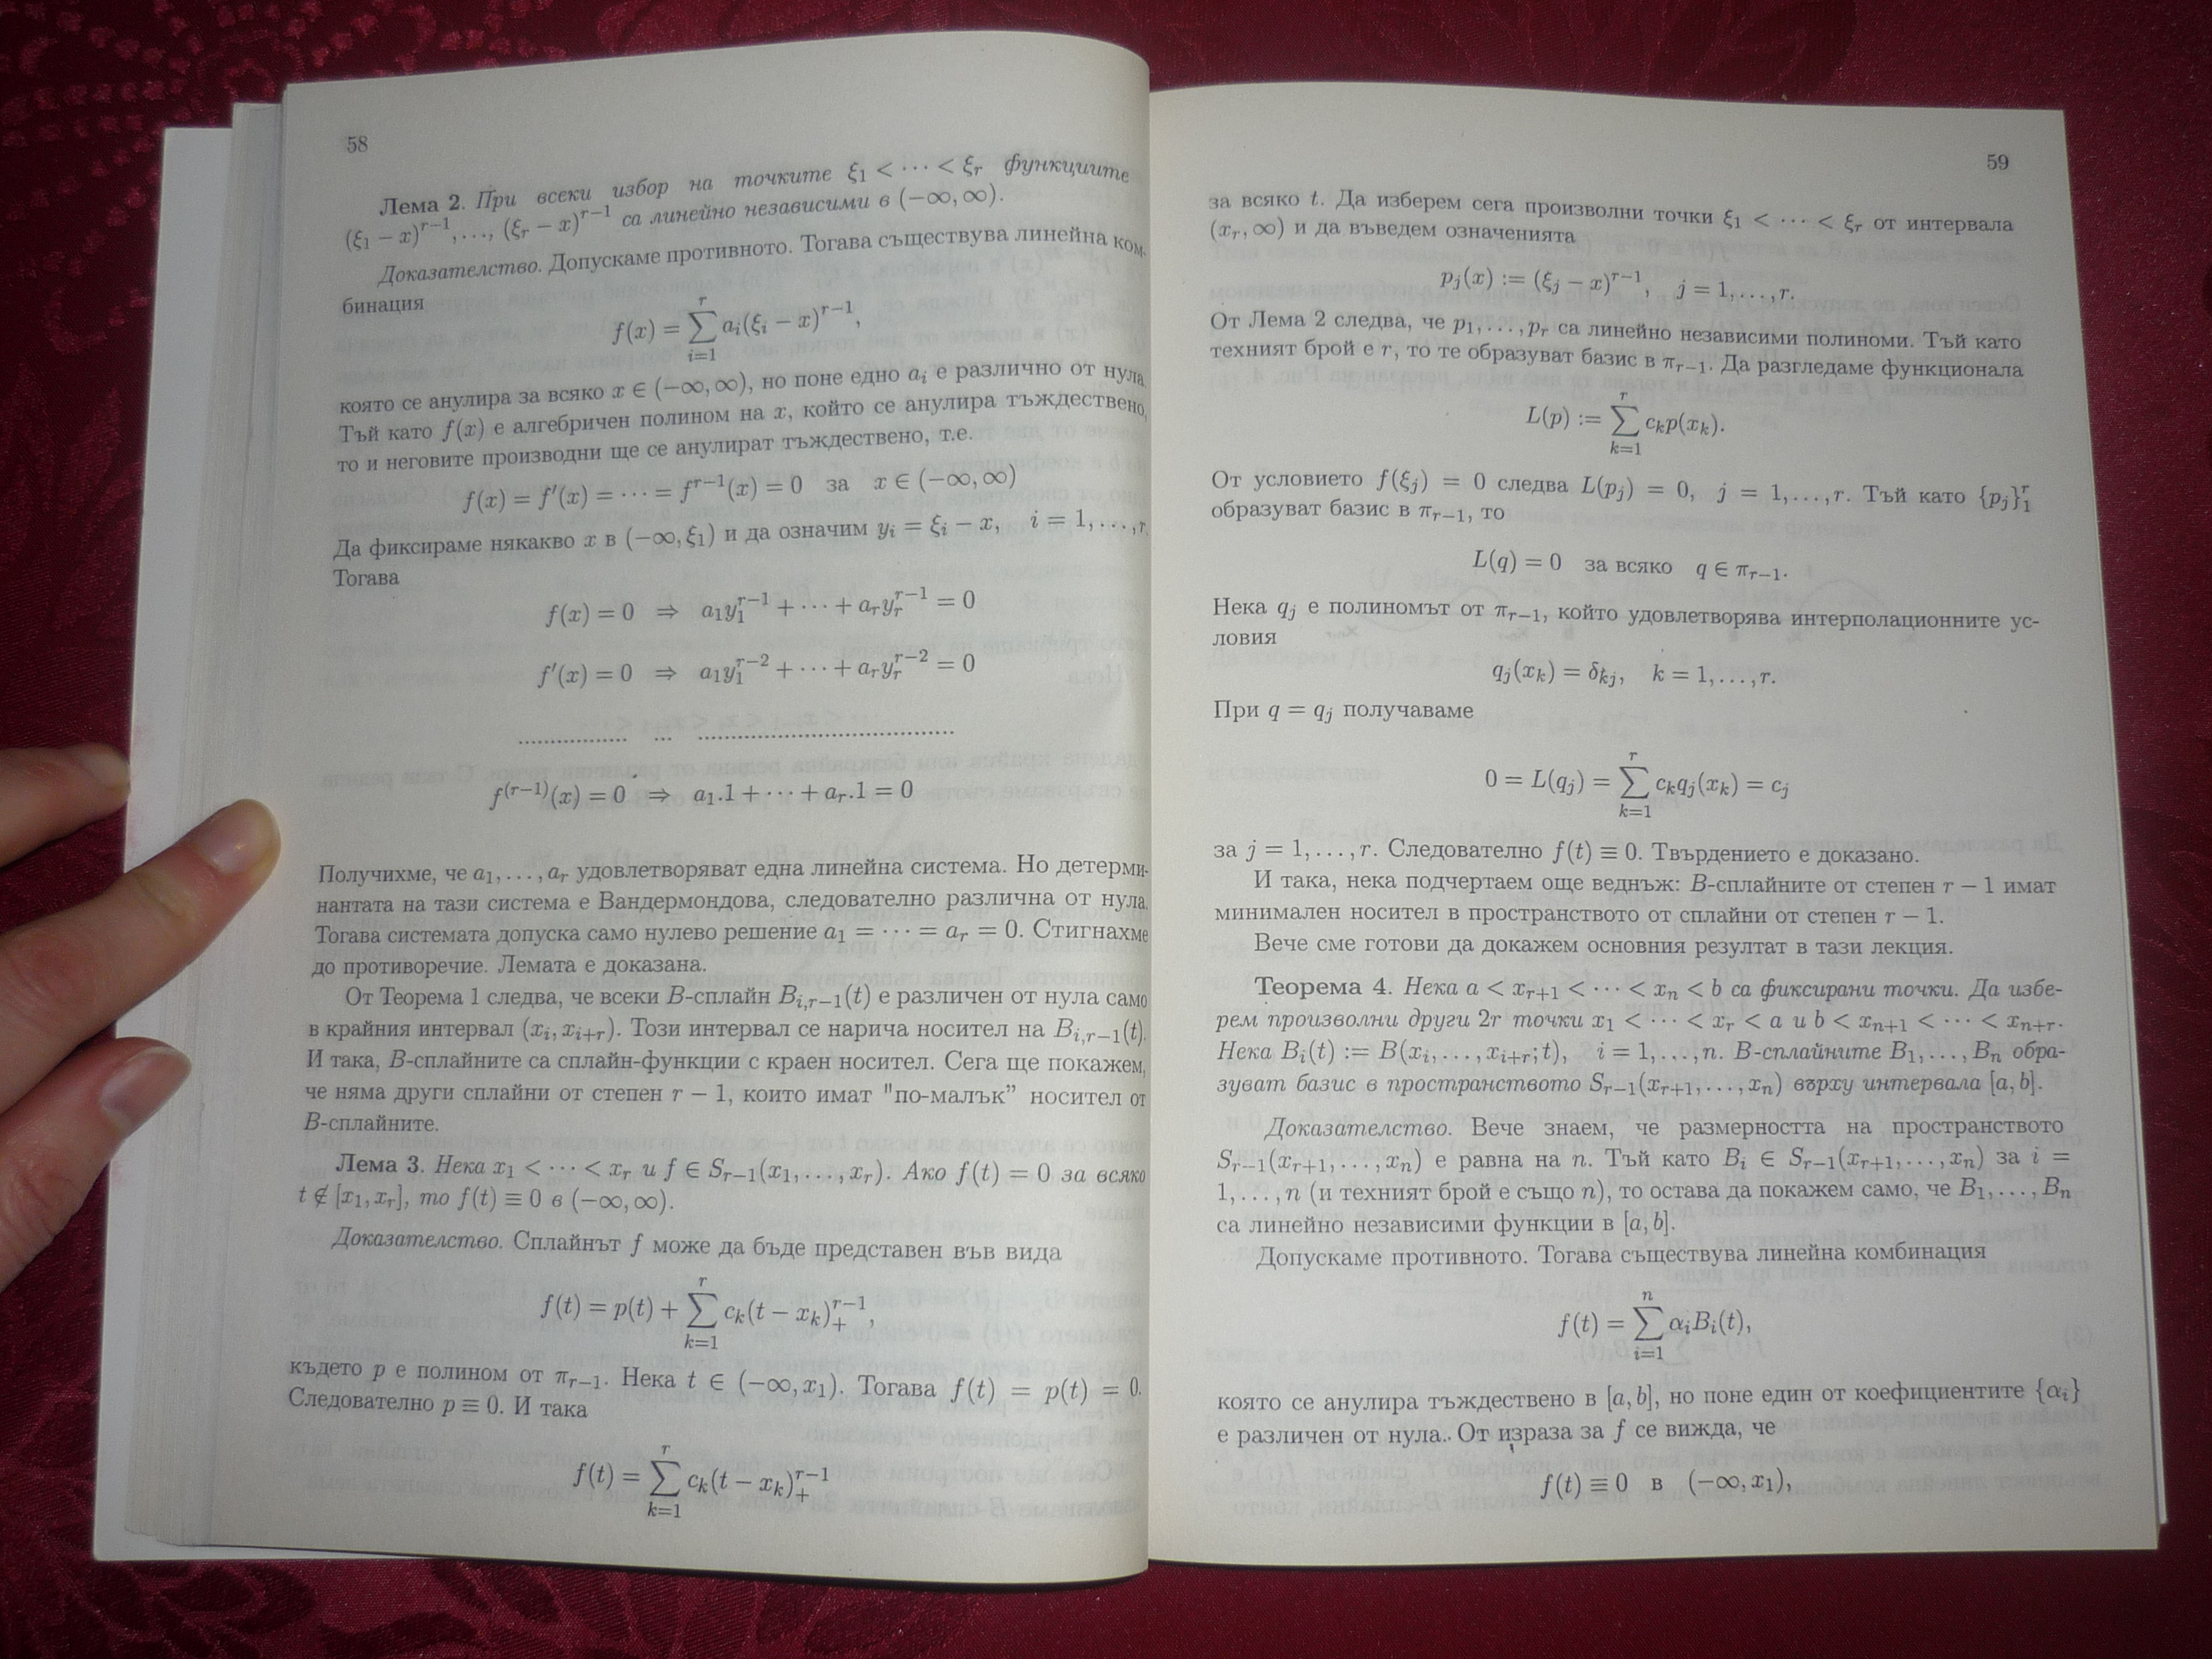 58
Лема 2. При всеки избор на точките ξ₁ < ⋯ < ξᵣ функциите
(ξ₁ − x)^{r−1}, …, (ξᵣ − x)^{r−1} са линейно независими в (−∞, ∞).
Доказателство. Допускаме противното. Тогава съществува линейна ком-
бинация
f(x) = ∑_{i=1}^{r} aᵢ(ξᵢ − x)^{r−1},
която се анулира за всяко x ∈ (−∞, ∞), но поне едно aᵢ е различно от нула.
Тъй като f(x) е алгебричен полином на x, който се анулира тъждествено,
то и неговите производни ще се анулират тъждествено, т.е.
f(x) = f′(x) = ⋯ = f^{r−1}(x) = 0 за x ∈ (−∞, ∞)
Да фиксираме някакво x в (−∞, ξ₁) и да означим yᵢ = ξᵢ − x, i = 1, …, r.
Тогава
f(x) = 0 ⇒ a₁y₁^{r−1} + ⋯ + aᵣyᵣ^{r−1} = 0
f′(x) = 0 ⇒ a₁y₁^{r−2} + ⋯ + aᵣyᵣ^{r−2} = 0
.................. ... ..........................................
f^{(r−1)}(x) = 0 ⇒ a₁.1 + ⋯ + aᵣ.1 = 0
Получихме, че a₁, …, aᵣ удовлетворяват една линейна система. Но детерми-
нантата на тази система е Вандермондова, следователно различна от нула.
Тогава системата допуска само нулево решение a₁ = ⋯ = aᵣ = 0. Стигнахме
до противоречие. Лемата е доказана.
От Теорема 1 следва, че всеки B-сплайн B_{i,r−1}(t) е различен от нула само
в крайния интервал (xᵢ, x_{i+r}). Този интервал се нарича носител на B_{i,r−1}(t).
И така, B-сплайните са сплайн-функции с краен носител. Сега ще покажем,
че няма други сплайни от степен r − 1, които имат "по-малък” носител от
B-сплайните.
Лема 3. Нека x₁ < ⋯ < xᵣ и f ∈ S_{r−1}(x₁, …, xᵣ). Ако f(t) = 0 за всяко
t ∉ [x₁, xᵣ], то f(t) ≡ 0 в (−∞, ∞).
Доказателство. Сплайнът f може да бъде представен във вида
f(t) = p(t) + ∑_{k=1}^{r} cₖ(t − xₖ)₊^{r−1},
където p е полином от π_{r−1}. Нека t ∈ (−∞, x₁). Тогава f(t) = p(t) = 0.
Следователно p ≡ 0. И така
f(t) = ∑_{k=1}^{r} cₖ(t − xₖ)₊^{r−1}
59
за всяко t. Да изберем сега произволни точки ξ₁ < ⋯ < ξᵣ от интервала
(xᵣ, ∞) и да въведем означенията
pⱼ(x) := (ξⱼ − x)^{r−1}, j = 1, …, r.
От Лема 2 следва, че p₁, …, pᵣ са линейно независими полиноми. Тъй като
техният брой е r, то те образуват базис в π_{r−1}. Да разгледаме функционала
L(p) := ∑_{k=1}^{r} cₖp(xₖ).
От условието f(ξⱼ) = 0 следва L(pⱼ) = 0, j = 1, …, r. Тъй като {pⱼ}₁^{r}
образуват базис в π_{r−1}, то
L(q) = 0 за всяко q ∈ π_{r−1}.
Нека qⱼ е полиномът от π_{r−1}, който удовлетворява интерполационните ус-
ловия
qⱼ(xₖ) = δ_{kj}, k = 1, …, r.
При q = qⱼ получаваме
0 = L(qⱼ) = ∑_{k=1}^{r} cₖqⱼ(xₖ) = cⱼ
за j = 1, …, r. Следователно f(t) ≡ 0. Твърдението е доказано.
И така, нека подчертаем още веднъж: B-сплайните от степен r − 1 имат
минимален носител в пространството от сплайни от степен r − 1.
Вече сме готови да докажем основния резултат в тази лекция.
Теорема 4. Нека a < x_{r+1} < ⋯ < xₙ < b са фиксирани точки. Да избе-
рем произволни други 2r точки x₁ < ⋯ < xᵣ < a и b < x_{n+1} < ⋯ < x_{n+r}.
Нека Bᵢ(t) := B(xᵢ, …, x_{i+r}; t), i = 1, …, n. B-сплайните B₁, …, Bₙ обра-
зуват базис в пространството S_{r−1}(x_{r+1}, …, xₙ) върху интервала [a, b].
Доказателство. Вече знаем, че размерността на пространството
S_{r−1}(x_{r+1}, …, xₙ) е равна на n. Тъй като Bᵢ ∈ S_{r−1}(x_{r+1}, …, xₙ) за i =
1, …, n (и техният брой е също n), то остава да покажем само, че B₁, …, Bₙ
са линейно независими функции в [a, b].
Допускаме противното. Тогава съществува линейна комбинация
f(t) = ∑_{i=1}^{n} αᵢBᵢ(t),
която се анулира тъждествено в [a, b], но поне един от коефициентите {αᵢ}
е различен от нула. От израза за f се вижда, че
f(t) ≡ 0 в (−∞, x₁),